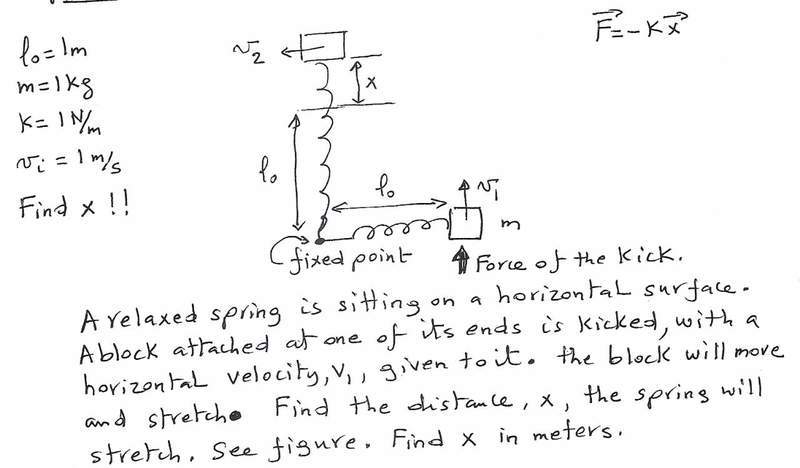 F = -Kx
l₀ = 1m
m = 1kg
K = 1 N/m
vᵢ = 1 m/s
Find x !!
v₂
x
l₀
l₀
v₁
m
fixed point
Force of the kick.
A relaxed spring is sitting on a horizontal surface.
A block attached at one of its ends is kicked, with a
horizontal velocity, V₁, given to it. the block will move
and stretch. Find the distance, x, the spring will
stretch. See figure. Find x in meters.